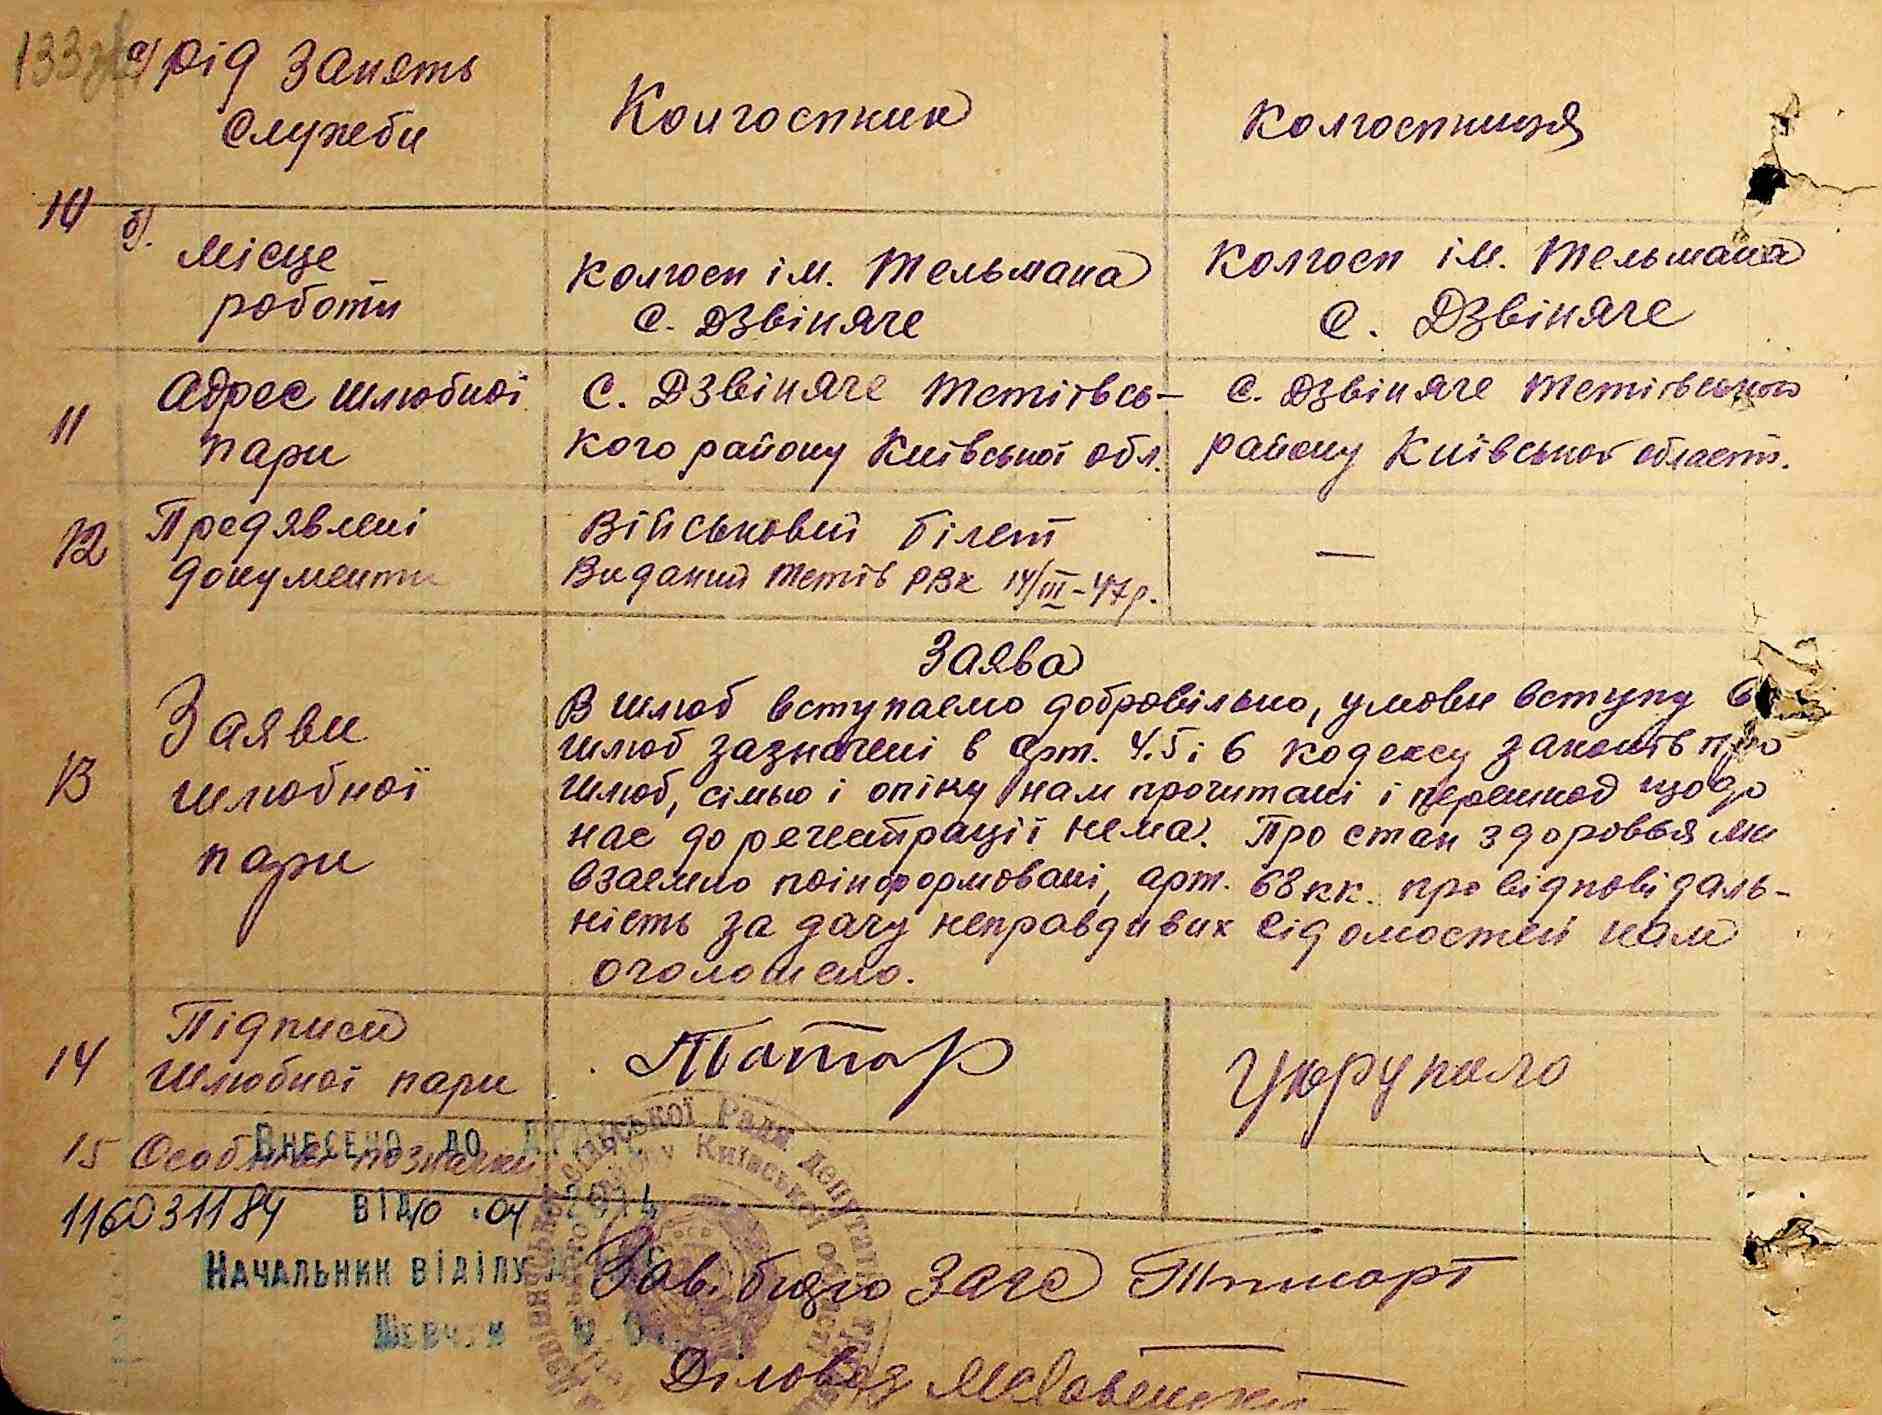 133
а) рід занять
служби
Колгоспник
Колгоспниця
10
б).
місце
роботи
колгосп ім. Тельмана
с. Дзвіняче
колгосп ім. Тельмана
с. Дзвіняче
11
Адрес шлюбної
пари
с. Дзвіняче Тетіївсь-
кого району Київської обл.
с. Дзвіняче Тетіївського
району Київської області.
12
Предявлені
документи
Військовий білет
Виданий Тетів РВК 14/III-47р.
—
13
Заяви
шлюбної
пари
Заява
В шлюб вступаємо добровільно, умови вступу в
шлюб зазначені в арт. 4.5 і 6 кодексу законів про
шлюб, сімью і опіку нам прочитані і перешкод щодо
нас до регистрації нема. Про стан здоровья ми
взаємно поінформовані, арт. 68 кк. про відповідаль-
ність за дачу неправдивих відомостей нам
оголошено.
14
Підписи
шлюбної пари
Татар
Цюрупало
15 Особливі позначки
Внесено до
116031184 від 10.04 2014
Начальник відділу
Зав. бюро Загс
Діловод
сільської Ради депутатів
Київської області